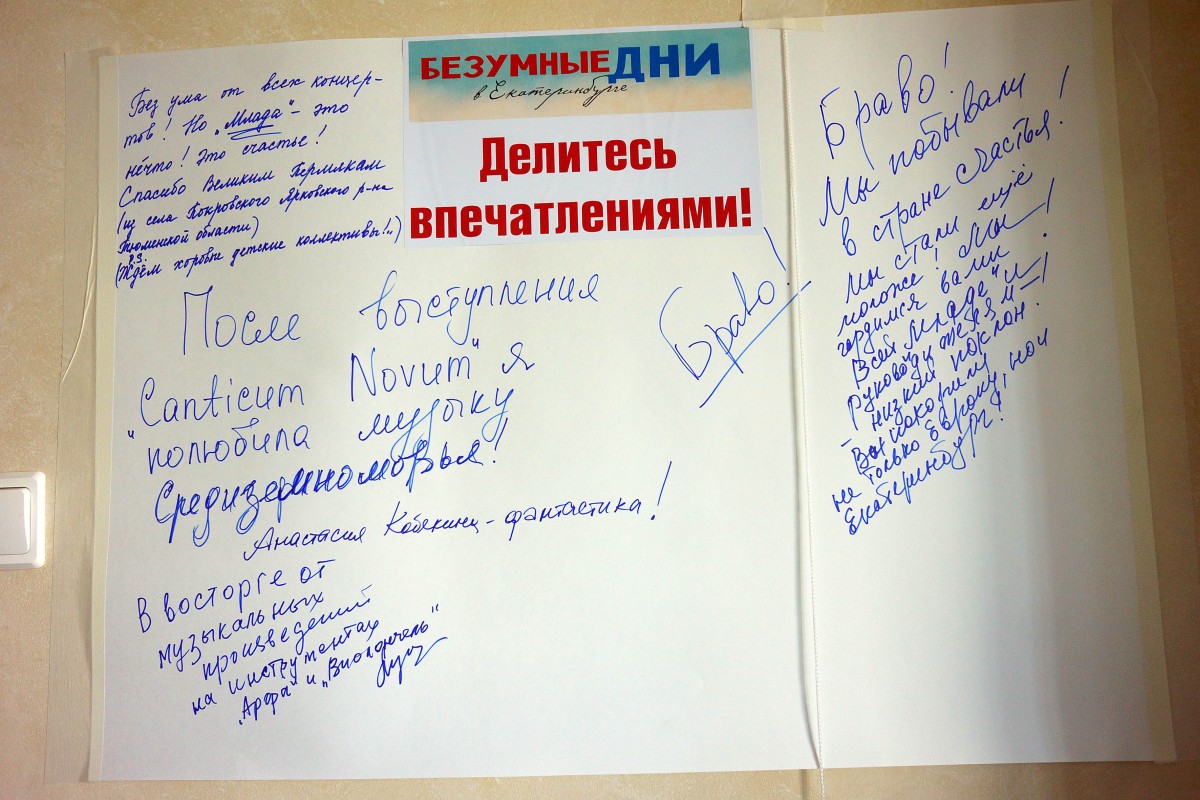 БЕЗУМНЫЕ ДНИ
в Екатеринбурге
Делитесь
впечатлениями!
Без ума от всех концер-
тов! Но „Млада" - это
нечто! Это счастье!
Спасибо Великим Пермякам
(из села Покровского Ярковского р-на
Тюменской области)
P.S.
(Ждём хоровые детские коллективы!..)
После выступления
"Canticum Novum" я
полюбила музыку
Средиземноморья!
Анастасия Кобекина - фантастика!
В восторге от
музыкальных
произведений
на инструментах
„Арфа" и „Виолончель"
Браво!
Браво!
Мы побывали
в стране счастья!
Мы стали ещё
моложе! Мы
гордимся вами!
Всей „Младе" и
руководителям -
низкий поклон!
Вы покорили
не только Европу, но и
Екатеринбург!